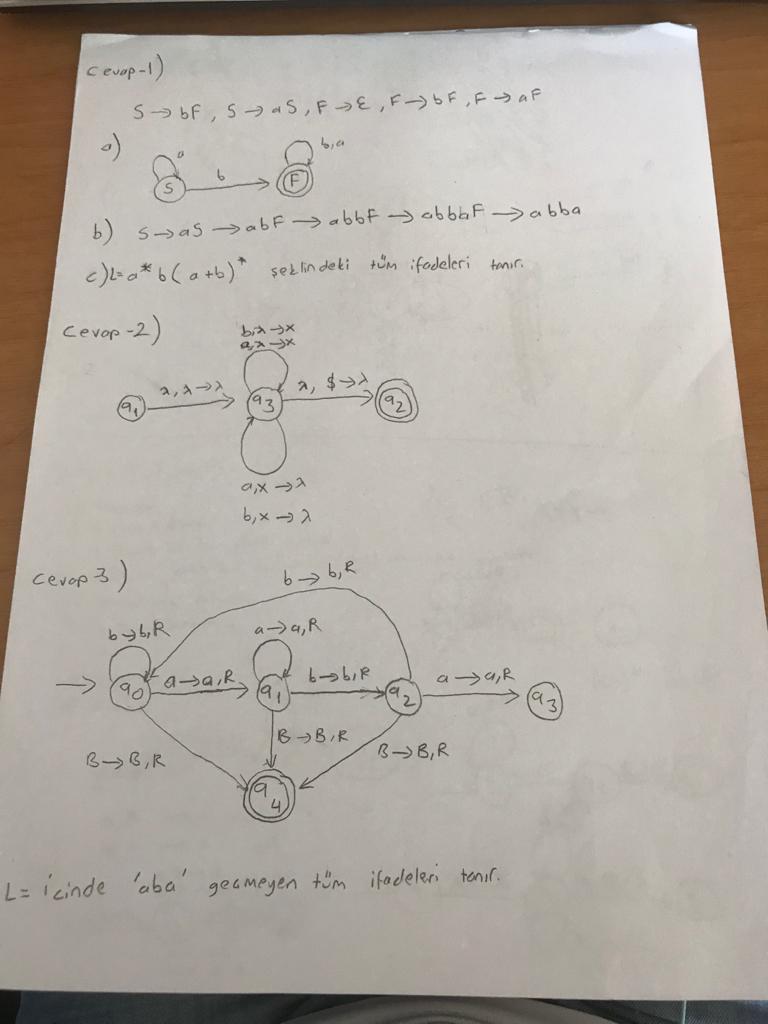 Cevap-1)
S→bF, S→aS, F→ε, F→bF, F→aF
a)
a
b
b,a
S
F
b) S→aS→abF→abbF→abbaF→abba
c) L=a*b(a+b)* şeklindeki tüm ifadeleri tanır.
Cevap-2)
b,λ→x
a,λ→x
λ,λ→λ
λ, $→λ
q1
q3
q2
a,x→λ
b,x→λ
Cevap 3)
b→b,R
b→b,R
a→a,R
q0
a→a,R
q1
b→b,R
q2
a→a,R
q3
B→B,R
B→B,R
B→B,R
q4
L= içinde 'aba' geçmeyen tüm ifadeleri tanır.